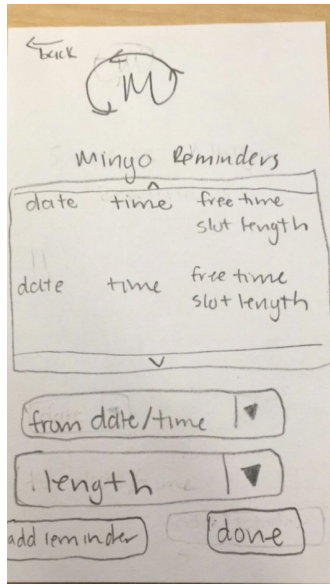 back
M
Mingo Reminders
date time free time
slot length
date time free time
slot length
from date/time
length
add reminder done